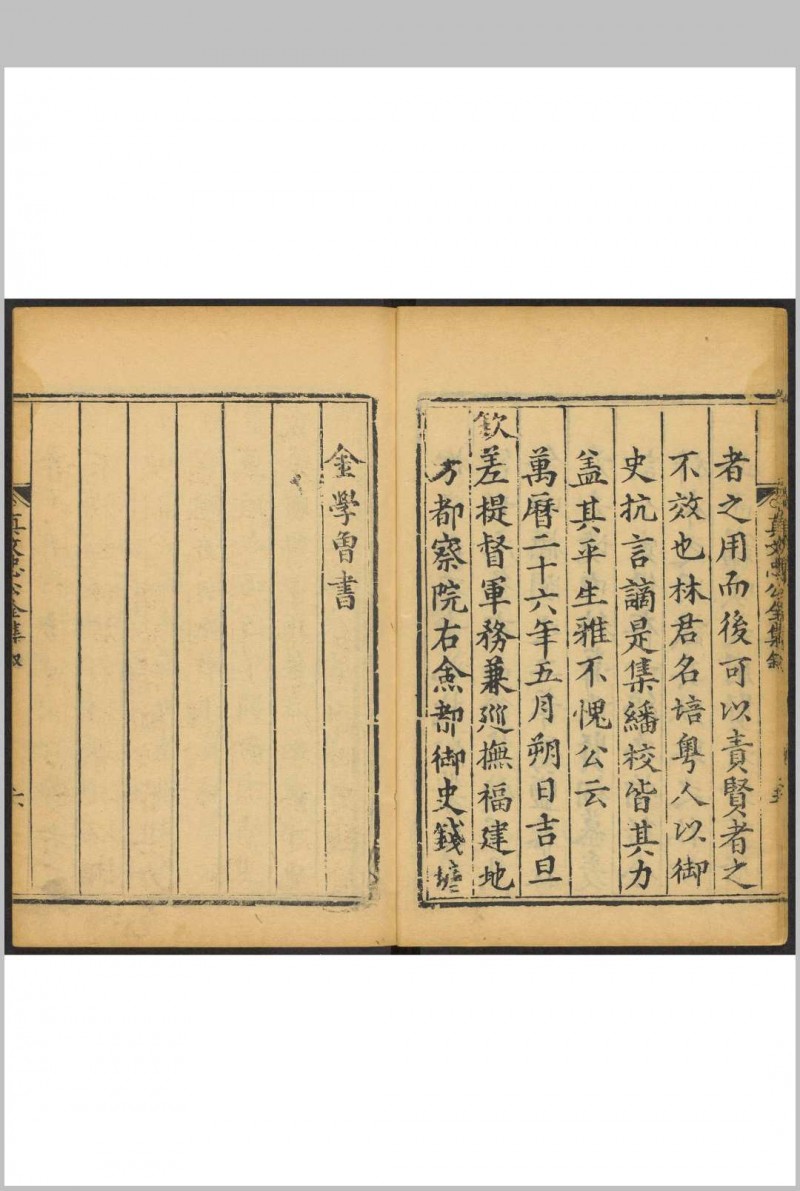 者之用而後可以責賢者之
不效也林君名培粤人以御
史抗言謫是集繙校皆其力
盖其平生雅不愧公云
萬曆二十六年五月朔日吉旦
欽差提督軍務兼廵撫福建地
方都察院右僉都御史錢塘
金學曾書
真文忠公全集
真文忠公全集叙
六